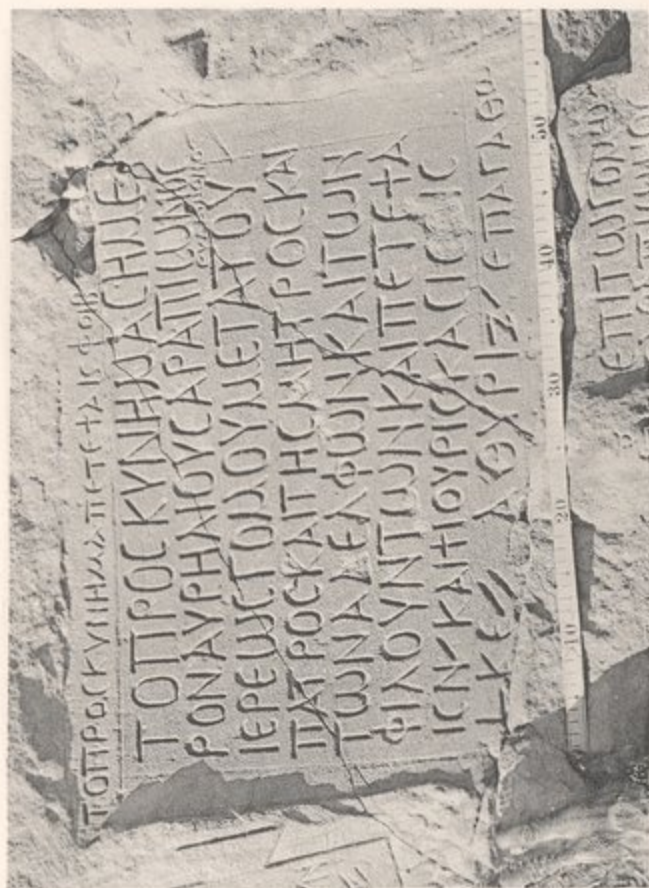 ΤΟΠΡΟCΚΥΝΗΜΑΠΕΤΕΨΑΙC
ΤΟΠΡΟCΚΥΝΗΜΑCΗΜΕ
ΡΟΝΑΥΡΗΛΙΟΥCΑΡΑΠΙΩΝΟC
ΙΕΡΕΩCΓΟΜΟΥΜΕΤΑΤΟΥ
ΠΑΤΡΟCΚΑΙΤΗCΜΗΤΡΟCΚΑΙ
ΤΩΝΑΔΕΛΦΩΝΚΑΙΤΩΝ
ΦΙΛΟΥΝΤΩΝΚΑΙΠΕΤΕΨΑ
ΙCΝ/ΚΑΙΗΟΥΡΙCΚΑCΙCΙC
LΚΕ// ΑΘΥΡΙΖ/ΕΠΑΓΑΘΩ
10 20 30 40 50
ΕΠΙΤΩΓΟΜΩ